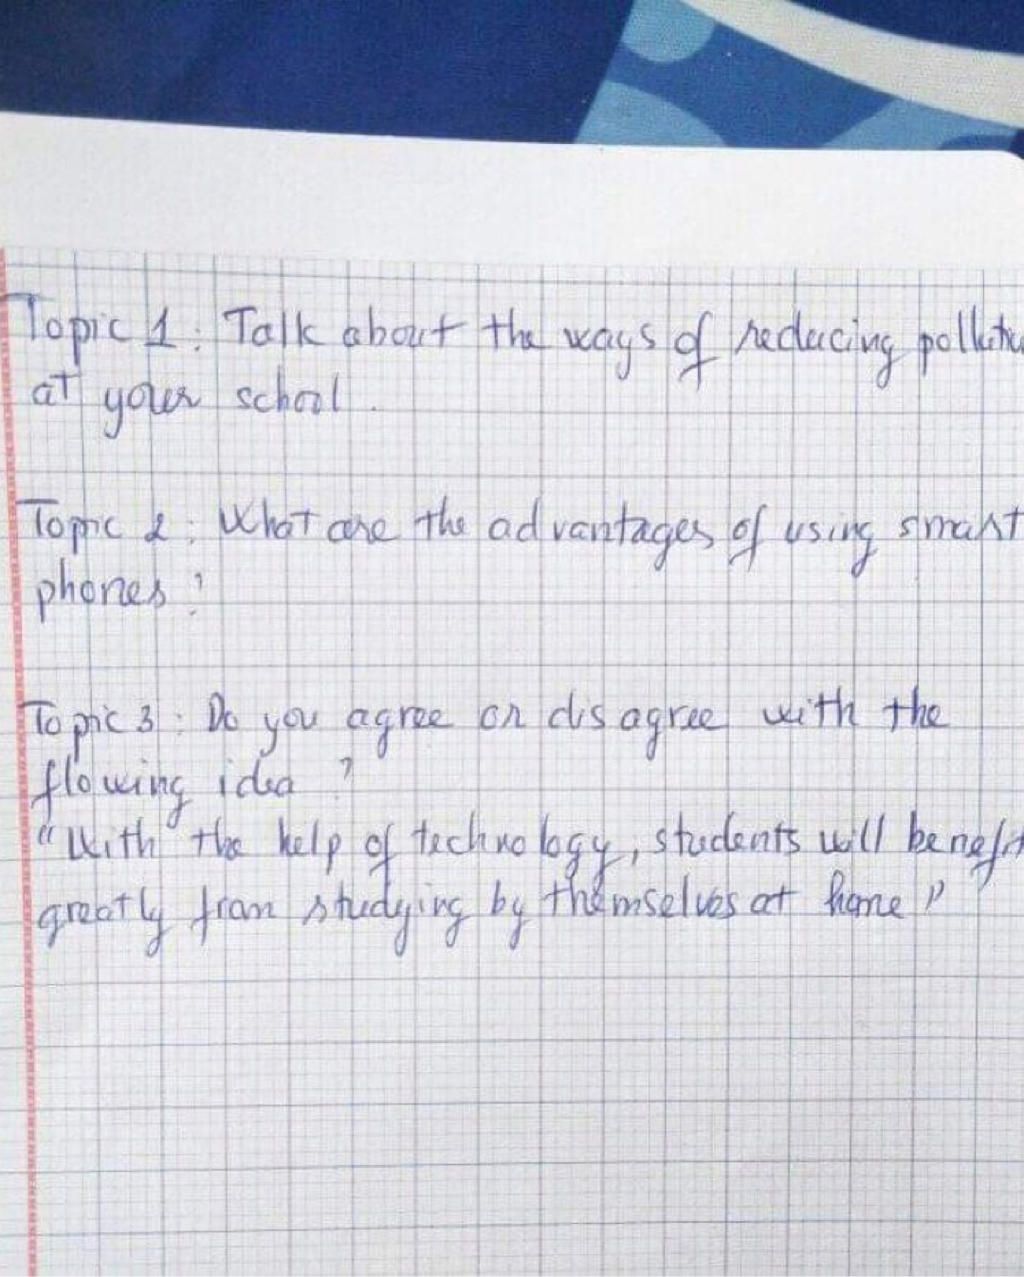 Topic 1: Talk about the ways of reducing
at your school.
Topic 2: What are the advantages of using smart
phones?
Topic 3: Do you agree or disagree with the
flowing idea?
"With the help of technology, students will benefit
greatly from studying by themselves at home"